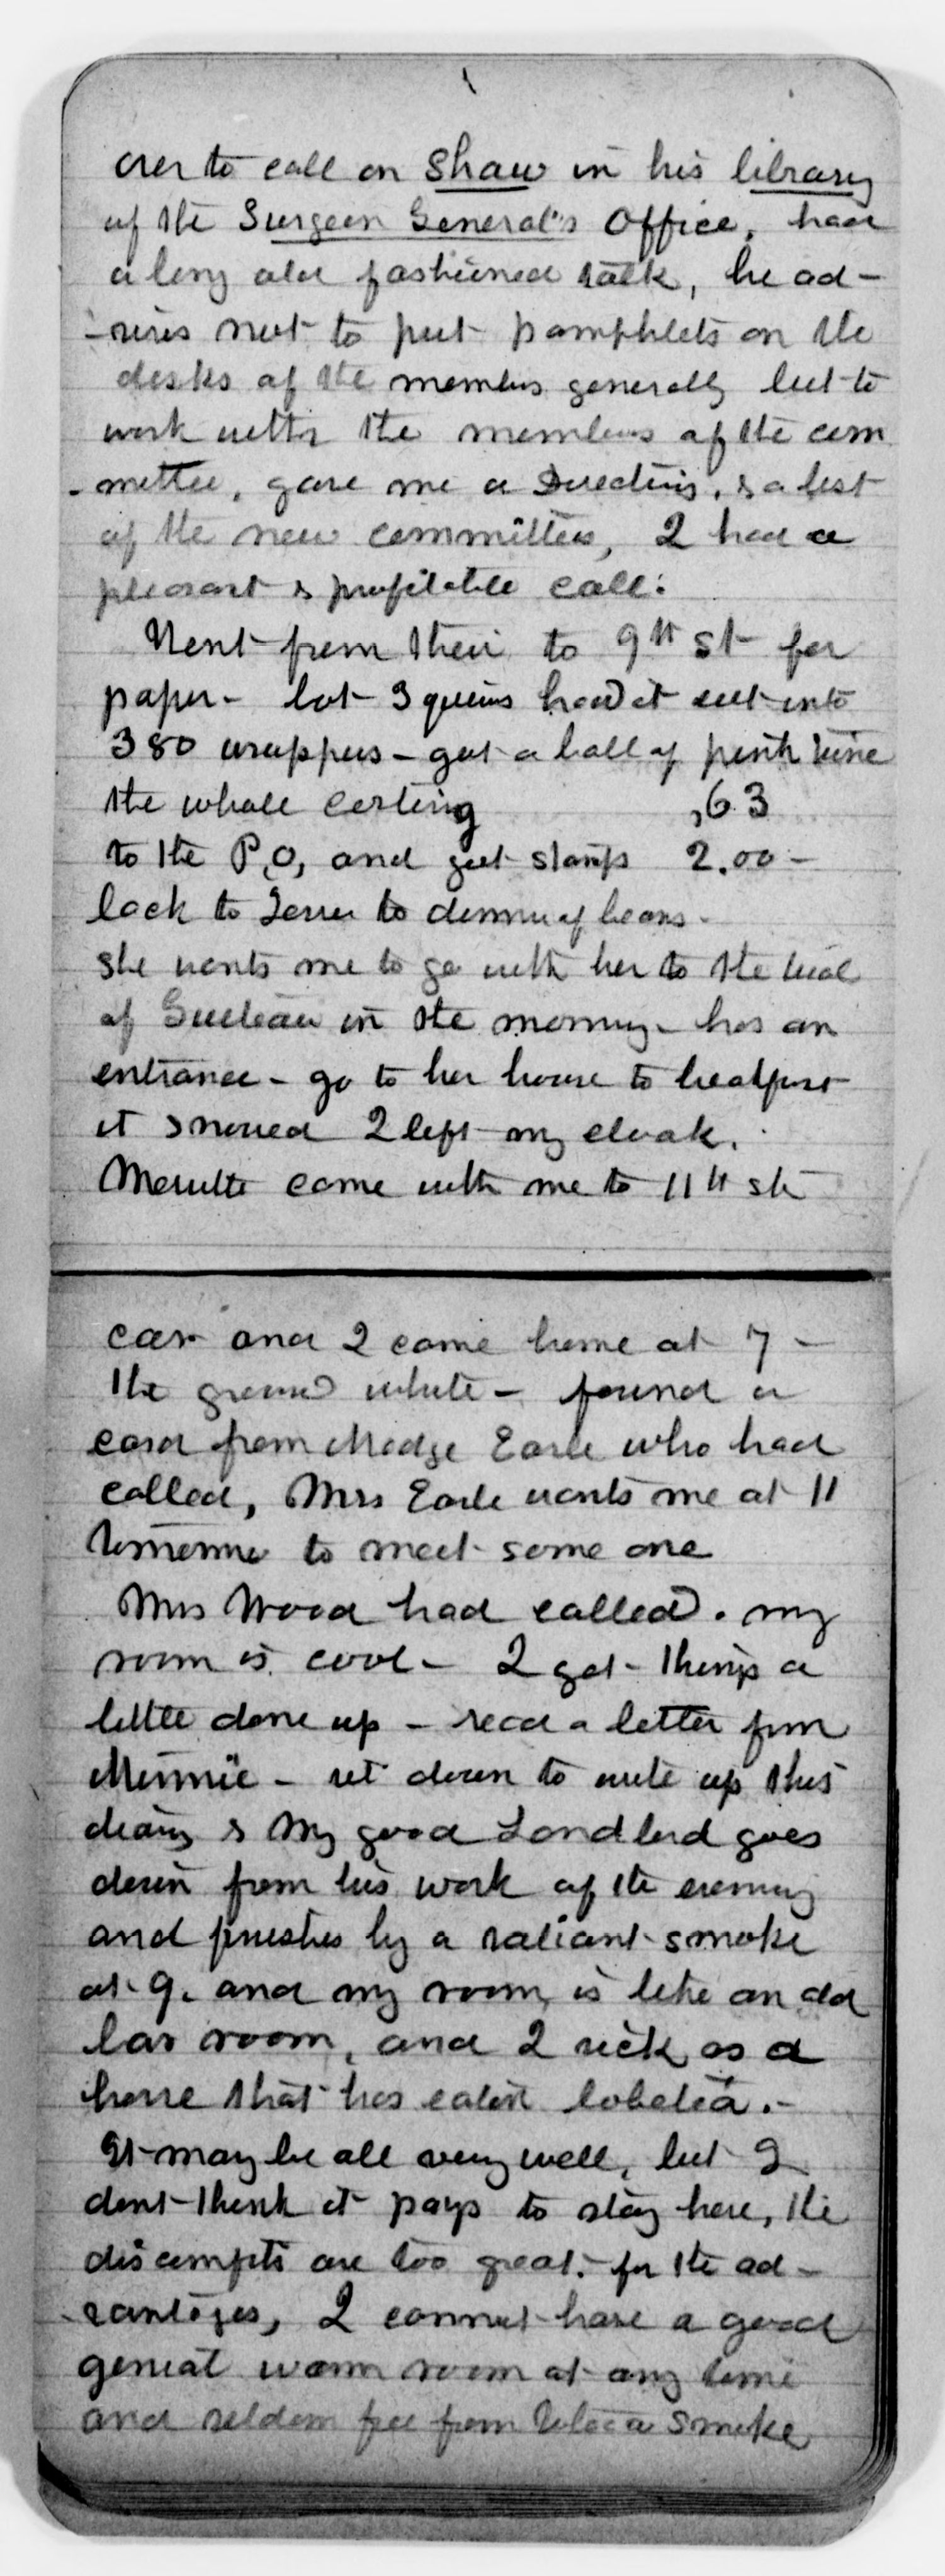 over to call on Shaw in his library
of the Surgeon General's Office, had
a long old fashioned talk, he ad-
-vises not to put pamphlets on the
desks of the members generally but to
work with the members of the com
-mittee, gave me a Directory, & a list
of the new committees, I had a
pleasant & profitable call.
Went from their to 9th St for
paper - bot 3 quires had it cut into
380 wrappers - got a ball of pink twine
the whole costing ,63
to the P,O, and got stamps 2.00 -
back to to dinner of beans -
she wants me to go with her to the trial
of Guiteau in the morning - has an
entrance - go to her house to breakfast
it snowed I left my cloak.
Merritte came with me to 11th st
car and I came home at 7 -
the ground white - found a
card from Madge Earle who had
called, Mrs Earle wants me at 11
tomorrow to meet some one
Mrs Wood had called. my
room is cool - I got things a
little done up - read a letter from
Minnie - set down to write up this
diary & my good Landlord goes
down from his work of the evening
and finishes by a valiant smoke
at 9. and my room is like an old
bar room, and I sick as a
horse that has eaten lobelia. -
It may be all very well, but I
dont think it pays to stay here, the
discomfits are too great - for the ad -
-vantages, I cannot have a good
genial warm room at any time
and seldom free from tobaco smoke